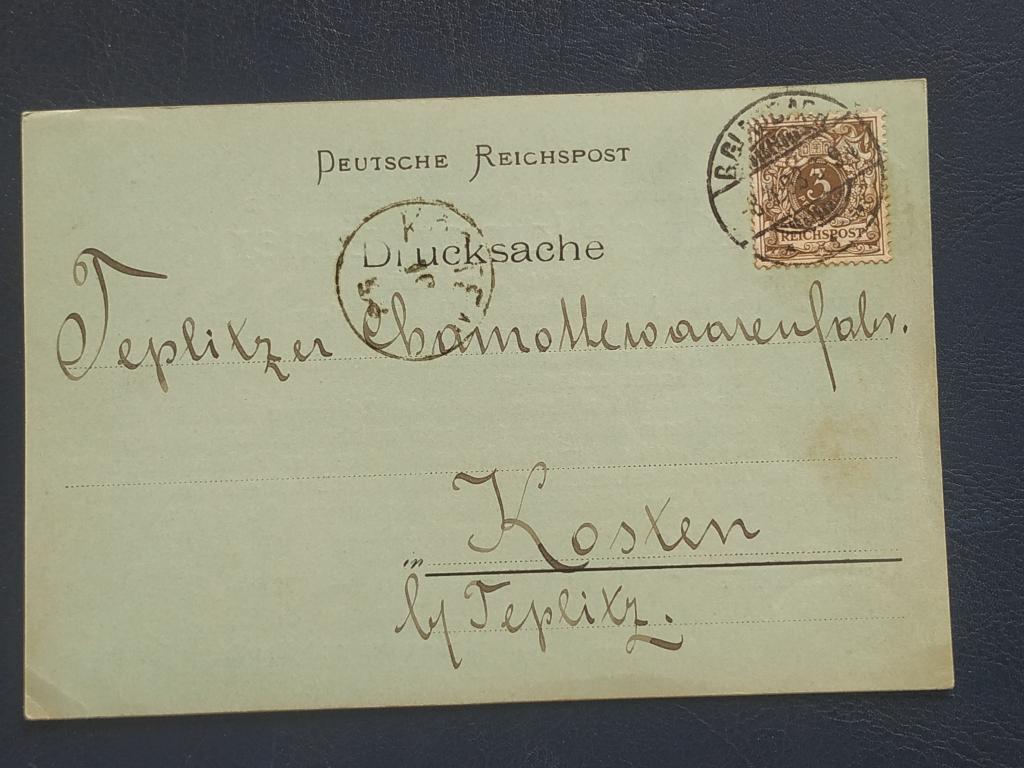 DEUTSCHE REICHSPOST
3
REICHSPOST
Drucksache
Teplitzer Chamottewaarenfabr.
in Kosten
by Teplitz.